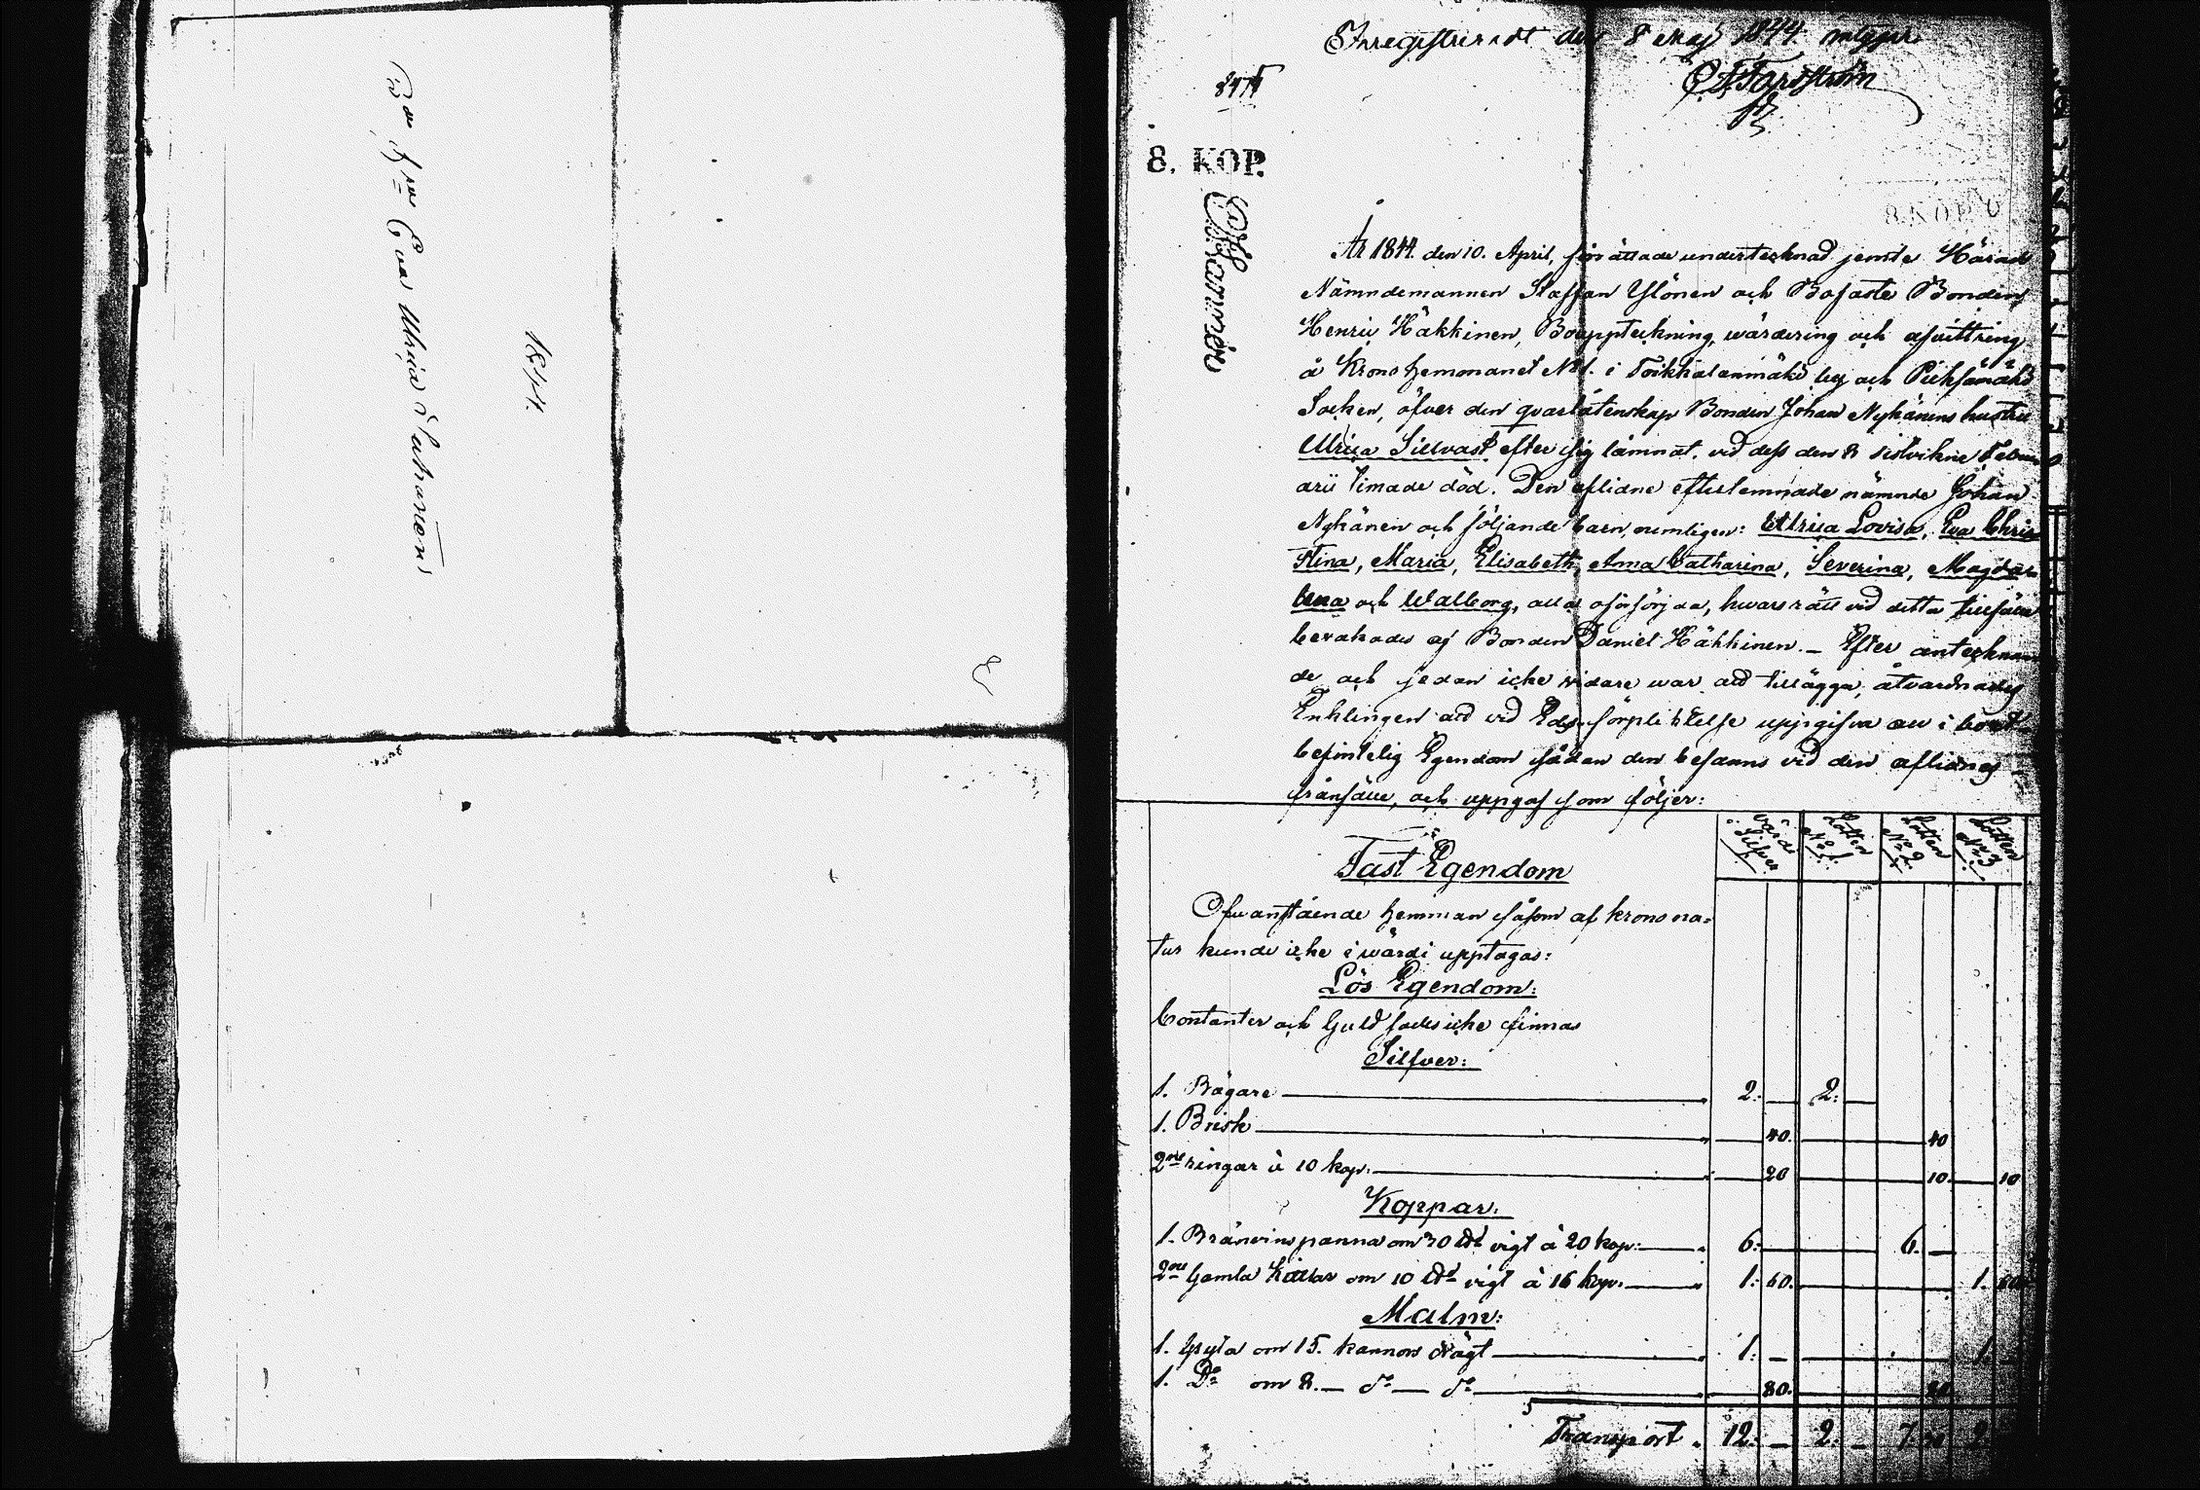 Bd fr Eva Ulrica Suhanen
1844.
Inregistreradt den 8 Maj 1844, intygar
8. KOP.
8. KOP.
År 1844 den 10. April, förrättade undertecknad jemte Härads
Nämndemannen Staffan Ylönen och Bofaste Bonden
Henric Häkkinen, Bouppteckning, wärdering och afvittring
å Krono hemmanet No 1. i Toikkalanmäki by och Pieksämäki
Socken, öfver den qvarlåtenskap Bonden Johan Nykänens hustru
Ulrica Sillvast efter sig lämnat, vid dess den 8 sistvikne Febru
arii timade död. Den aflidne efterlemnade nämnde Johan
Nykänen och följande barn, nemligen: Ulrica Lovisa, Eva Chris
tina, Maria, Elisabeth, Anna Catharina, Severina, Magda
lena och Walborg, alla oförsörjda, hwars rätt vid detta tillfälle
bevakades af Bonden Daniel Häkkinen. – Efter antecknan
de och sedan icke vidare war att tillägga, åtvarnades
Enklingen att vid Eds förpliktelse uppgifva all i boet
befintelig Egendom sådan den befanns vid den aflidnes
frånfälle, och uppgaf som följer:
Värd i Silfver Lotten No 1. Lotten No 2. Lotten No 3.
Fast Egendom
Ofvanstående hemman såsom af krono na=
tur kunde icke i wärde upptagas:
Lös Egendom:
Contanter och Guld sades icke finnas
Silfver:
1. Bägare 2. — 2. —
1. Brisk 40. 40
2ne ringar à 10 kop. 20 10. 10
Koppar:
1. Bränvinspanna om 30 ℔ vigt à 20 kop: 6. 6. —
2ne Gamla Kittlar om 10 ℔ vigt à 16 kop. 1. 60. 1. 60
Malm:
1. Gryta om 15. kannors drägt 1. — 1.
1. Do om 8. — do — do 80. 80
Transport 12. — 2. — 7.